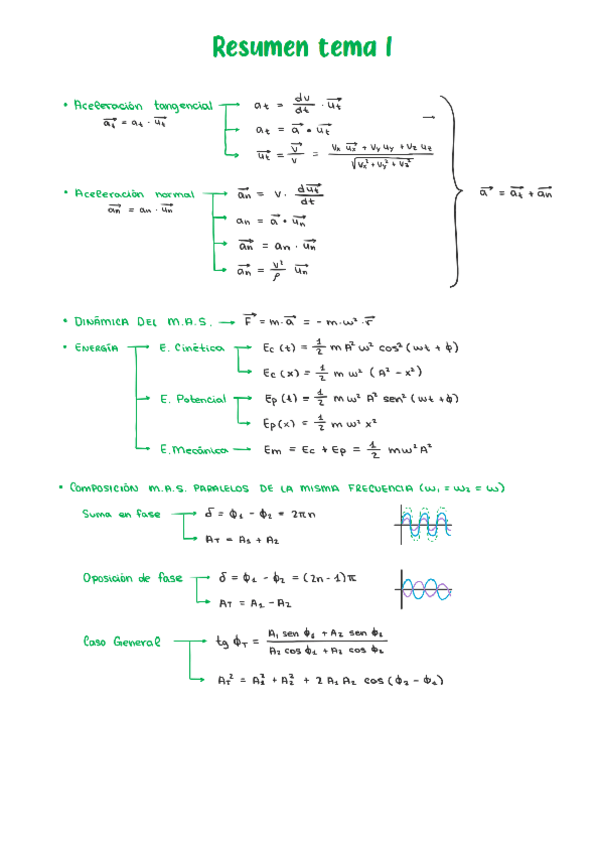 Resumen tema 1
• Aceleración tangencial → at = dv/dt · u⃗t
a⃗t = at · u⃗t
at = a⃗ • u⃗t
u⃗t = v⃗/v = (vx u⃗x + vy uy + vz uz)/√(vx² + vy² + vz²)
a⃗ = a⃗t + a⃗n
• Aceleración normal → a⃗n = v · du⃗t/dt
a⃗n = an · u⃗n
an = a⃗ • u⃗n
a⃗n = an · u⃗n
a⃗n = v²/ρ u⃗n
• DINÁMICA DEL M.A.S. → F⃗ = m·a⃗ = - m·ω²·r⃗
• ENERGÍA → E. Cinética → Ec (t) = 1/2 m A² ω² cos² (ωt + ϕ)
Ec (x) = 1/2 m ω² (A² - x²)
E. Potencial → Ep (t) = 1/2 m ω² A² sen² (ωt + ϕ)
Ep(x) = 1/2 m ω² x²
E.Mecánica → Em = Ec + Ep = 1/2 mω²A²
• COMPOSICIÓN M.A.S. PARALELOS DE LA MISMA FRECUENCIA (ω₁ = ω₂ = ω)
Suma en fase → δ = ϕ₁ - ϕ₂ = 2πn
AT = A₁ + A₂
Oposición de fase → δ = ϕ₁ - ϕ₂ = (2n - 1)π
AT = A₁ - A₂
Caso General → tg ϕT =

AT² = A₁² + A₂² + 2 A₁ A₂ cos (ϕ₂ - ϕ₁)